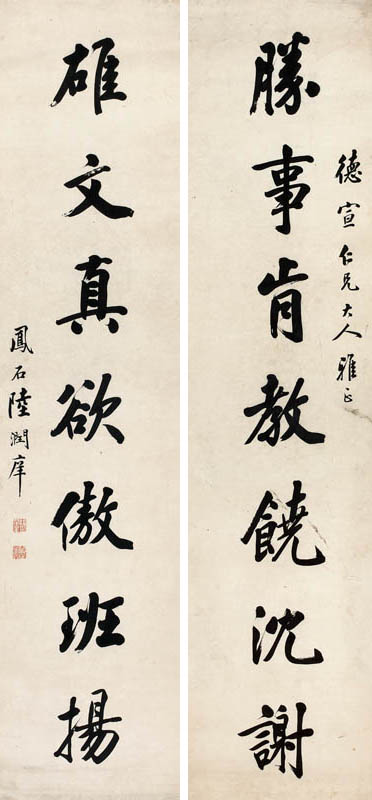 德宣仁兄大人雅正
勝事肯教饒沈謝
雄文真欲傲班揚
鳳石陸潤庠